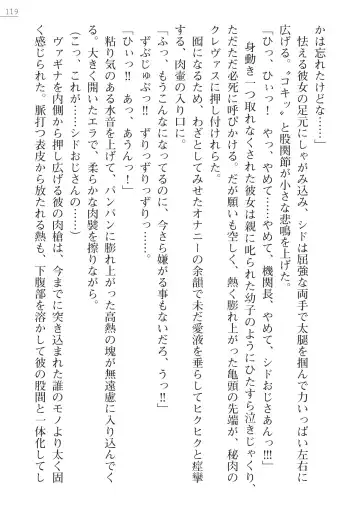 119
かは忘れたけどな……」
怯える彼女の足元にしゃがみ込み、シドは屈強な両手で太腿を掴んで力いっぱい左右に
広げる。〝ゴキッ〟と股関節が小さな悲鳴を上げた。
「ひっ、ひぃっ！　やっ、やめて……やめて、機関長、やめて、シドおじさあんっ!!!」
身動き一つ取れなくされた彼女は親に叱られた幼子のようにひたすら泣きじゃくり、
ただただ必死に呼びかける。だが願いも空しく、熱く膨れ上がった亀頭の先端が、秘肉の
クレヴァスに押し付けられた。
囮になるため、わざとしてみせたオナニーの余韻で未だ愛液を垂らしてヒクヒクと痙攣
する、肉壺の入り口に。
「ふっ、もうこんなになってるのに、今さら嫌がる事もないだろ、うっ!!」
ずぷじゅぷっ!!　ずりっずりっずりっ……
「ひぃっ!!　あっ、あうんっ！」
粘り気のある水音を上げて、パンパンに膨れ上がった高熱の塊が無遠慮に入り込んでく
る。大きく開いたエラで、柔らかな肉襞を擦りながら……
（こっ、これが……シドおじさんの……）
ヴァギナを内側から押し広げる彼の肉槍は、今までに突き込まれた誰のモノより太く固
く感じられた。脈打つ表皮から放たれる熱も、下腹部を溶かして彼の股間と一体化してし